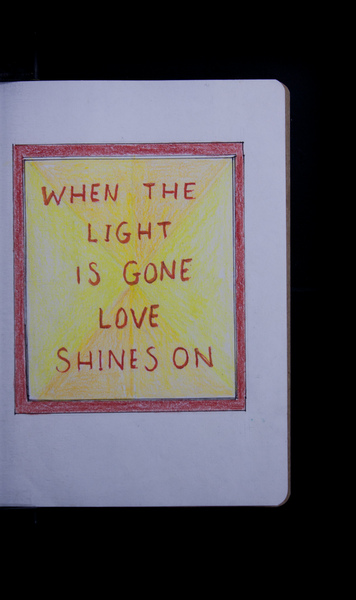 WHEN THE
LIGHT
IS GONE
LOVE
SHINES ON